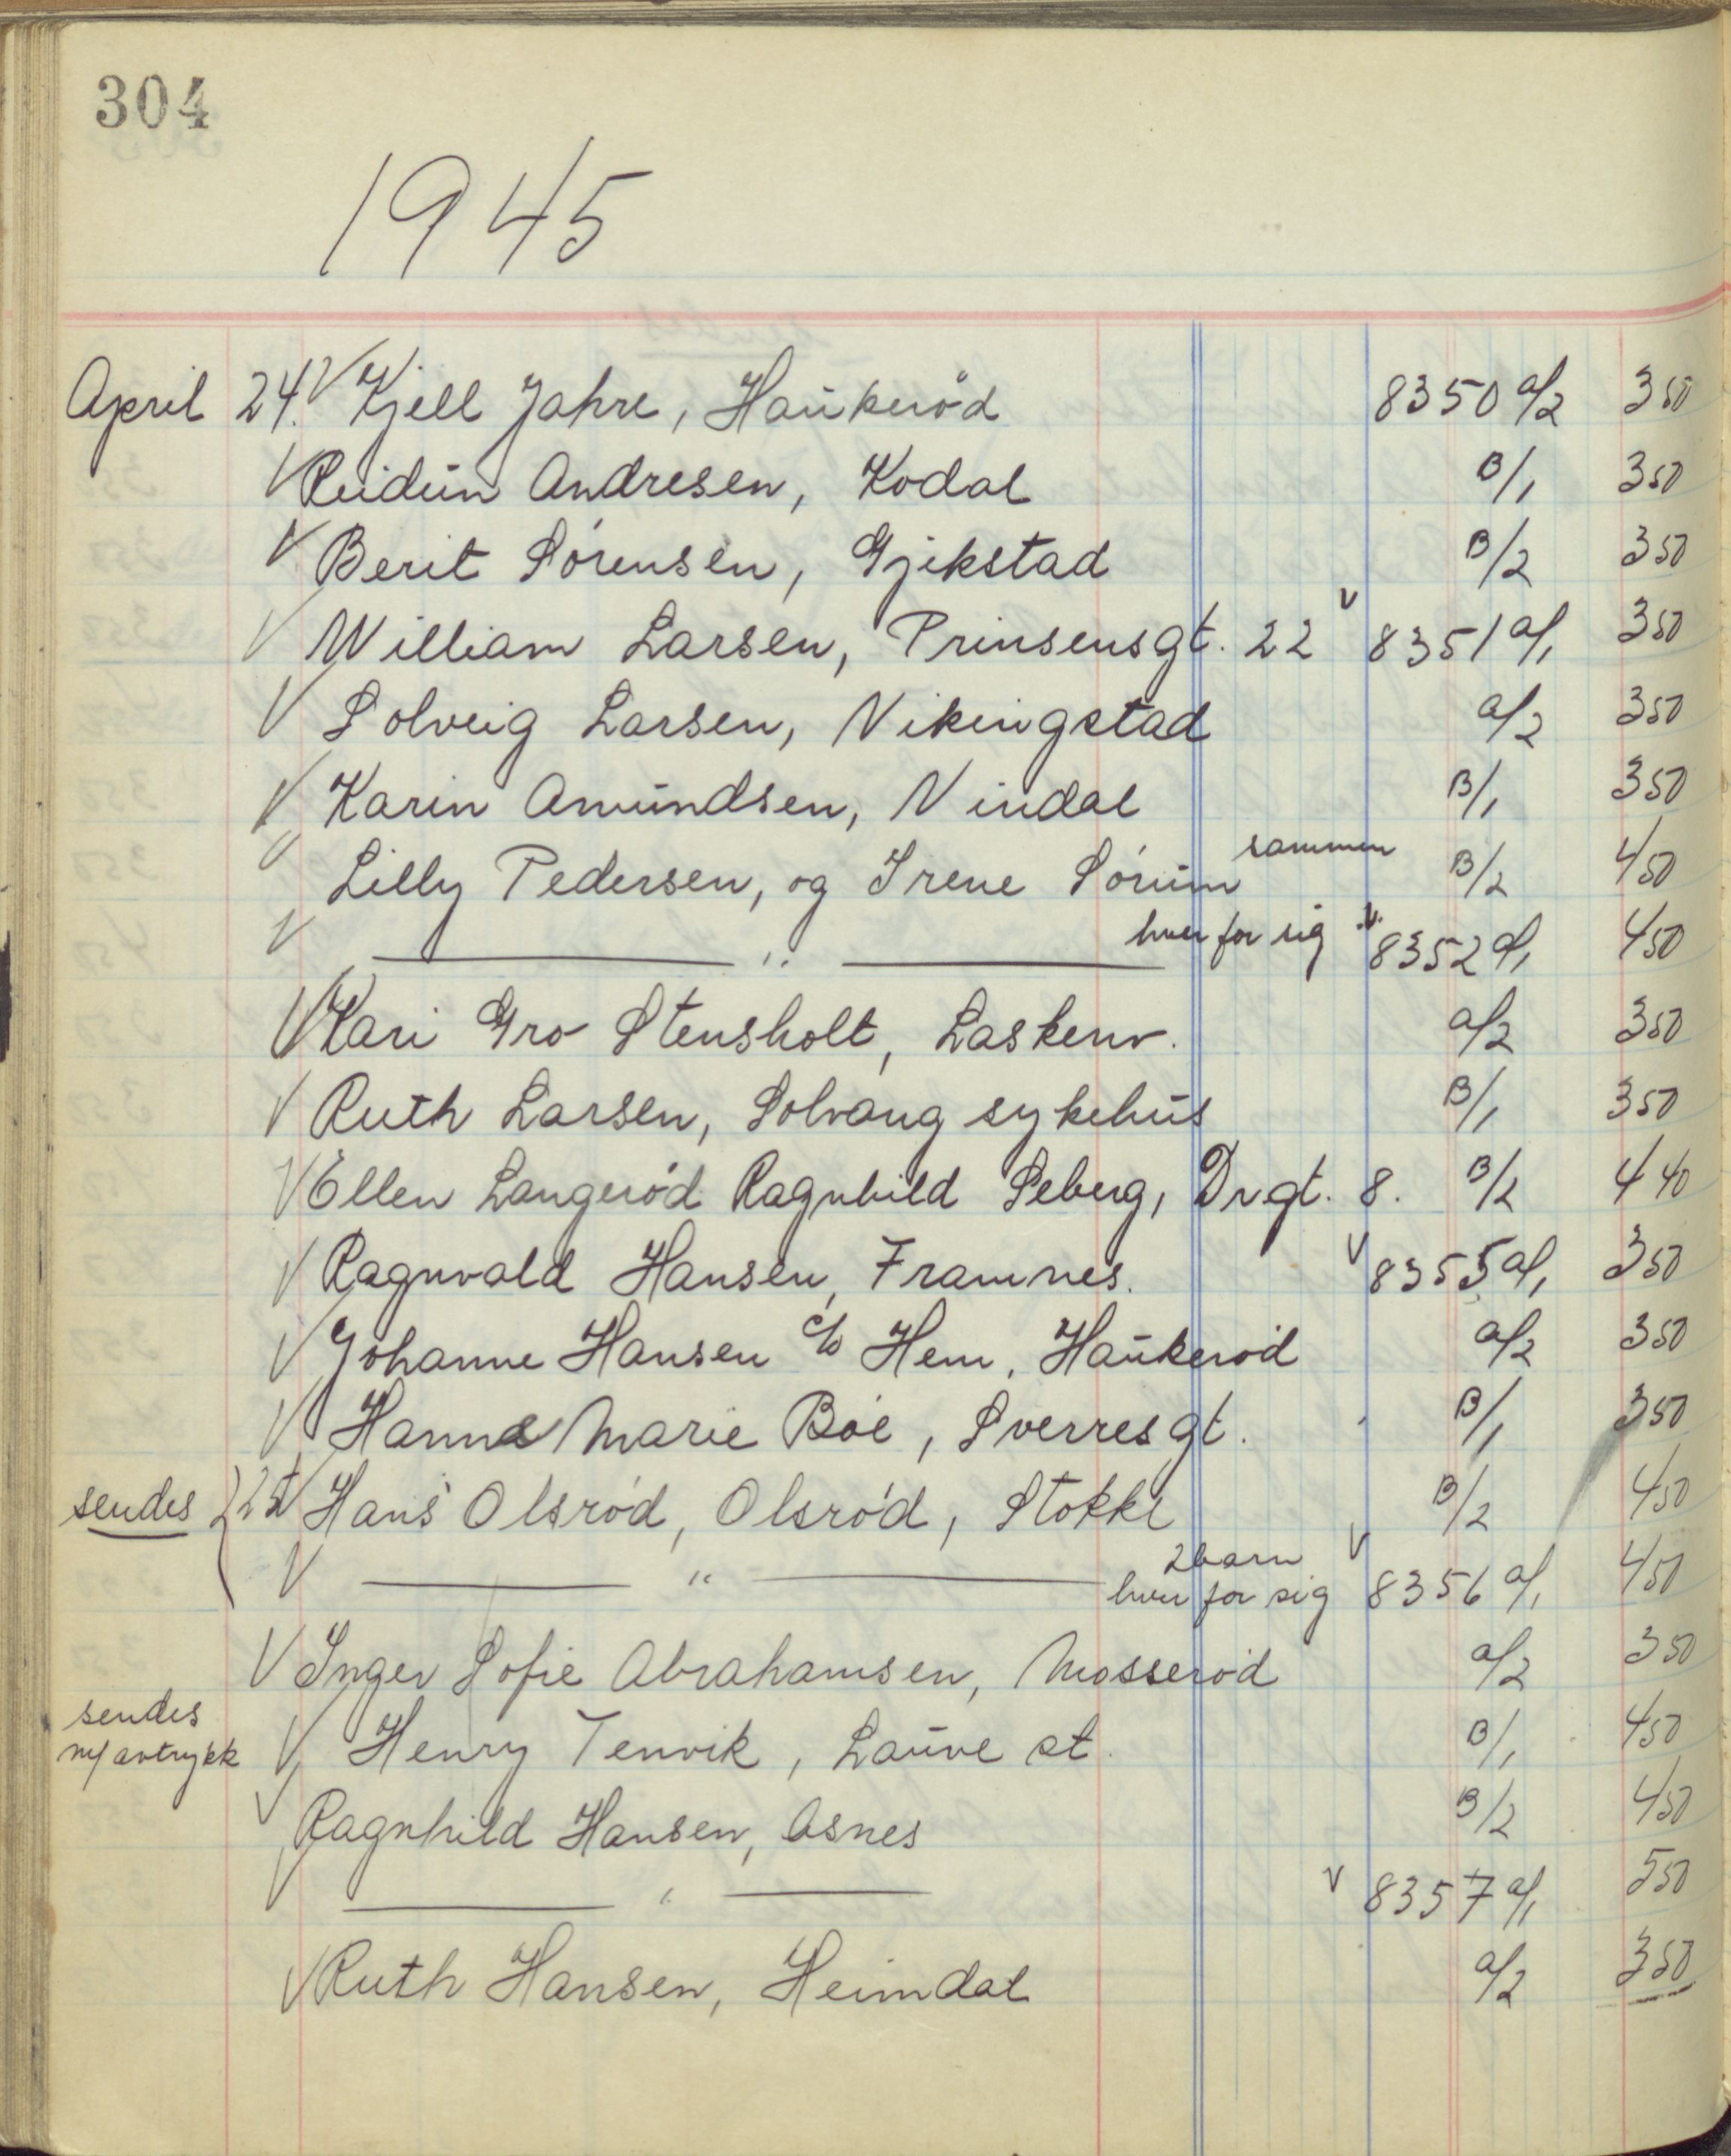 304
1945
April 24. V Kjell Jahre, Haukerød 8350 a/2 3 50
V Reidun Andresen, Kodal B/1 3 50
V Berit Sørensen, Gjekstad B/2 3 50
V William Larsen, Prinsensgt. 22 V 8351 a/1 3 50
V Solveig Larsen, Vikingstad a/2 3 50
V Karin Amundsen, Vindal B/1 3 50
V Lilly Pedersen, og Irene Sørum sammen B/2 4 50
V — " — hver for sig V 8352 a/1 4 50
V Kari Gro Stensholt, Laskenv. a/2 3 50
V Ruth Larsen, Solvang sykehus B/1 3 50
V Ellen Langerød Ragnhild Seberg, Drgt. 8. B/2 4 40
V Ragnvald Hansen, Framnes. V 8355 a/1 3 50
V Johanne Hansen c/o Hem, Haukerød a/2 3 50
V Hanna Marie Bøe, Sverresgt. B/1 3 50
sendes 25 V Hans Olsrød, Olsrød, Stokke B/2 4 50
V — " — 2 barn hver for sig V 8356 a/1 4 50
V Inger Sofie Abrahamsen, Mosserød a/2 3 50
sendes
m/avtrykk V Henry Tenvik, Lauve st. B/1 4 50
V Ragnhild Hansen, Asnes B/2 4 50
V — " — V 8357 a/1 5 50
V Ruth Hansen, Heimdal a/2 3 50